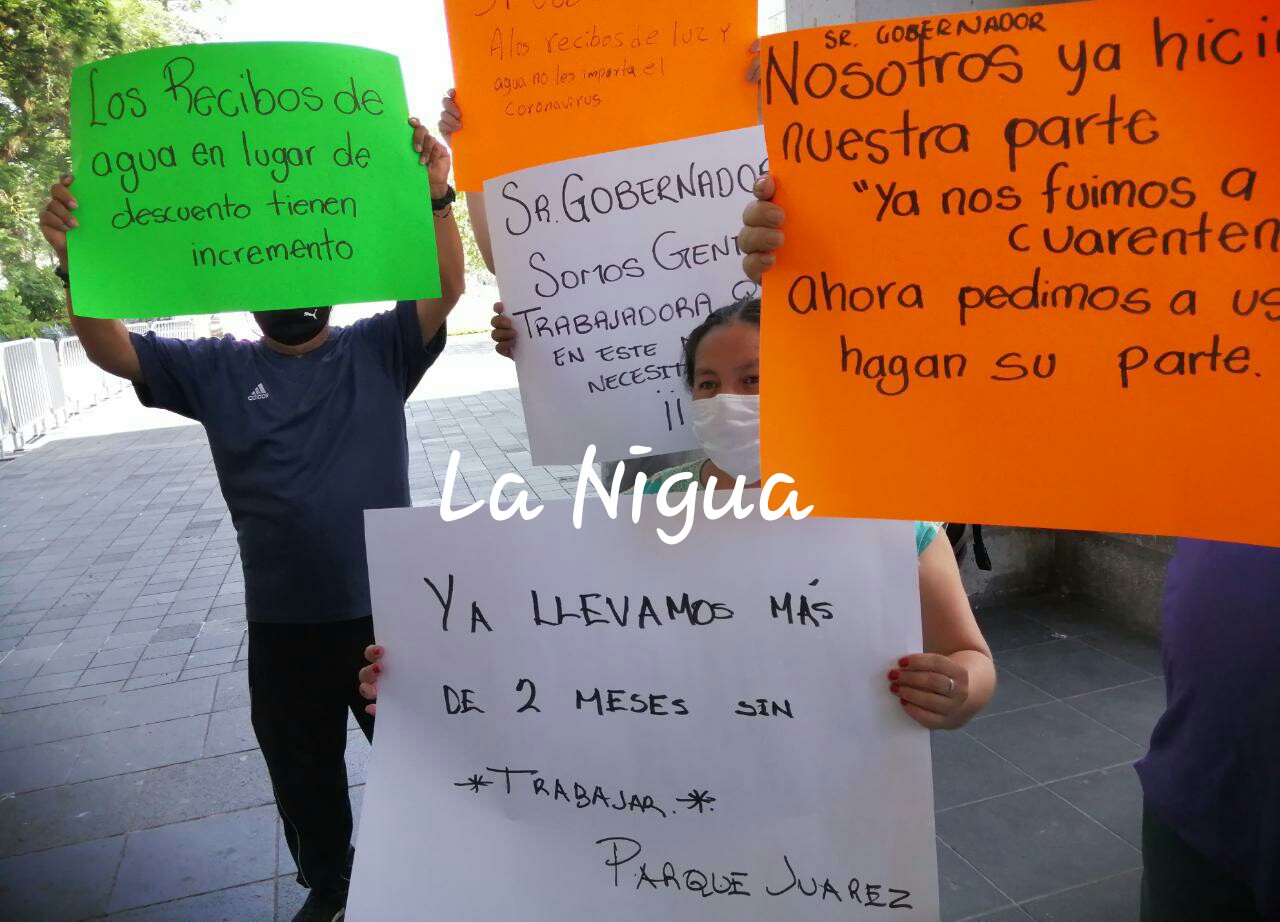 Los Recibos de
agua en lugar de
descuento tienen
incremento
A los recibos de luz y
agua no les importa el
coronavirus
SR. GOBERNADOR
SOMOS GENT
TRABAJADORA
EN ESTE
NECESIT
¡¡
SR. GOBERNADOR
Nosotros ya hici
nuestra parte
"Ya nos fuimos a
cuarenten
ahora pedimos a us
hagan su parte.
adidas
La Nigua
YA LLEVAMOS MÁS
DE 2 MESES SIN
*TRABAJAR.*
PARQUE JUAREZ